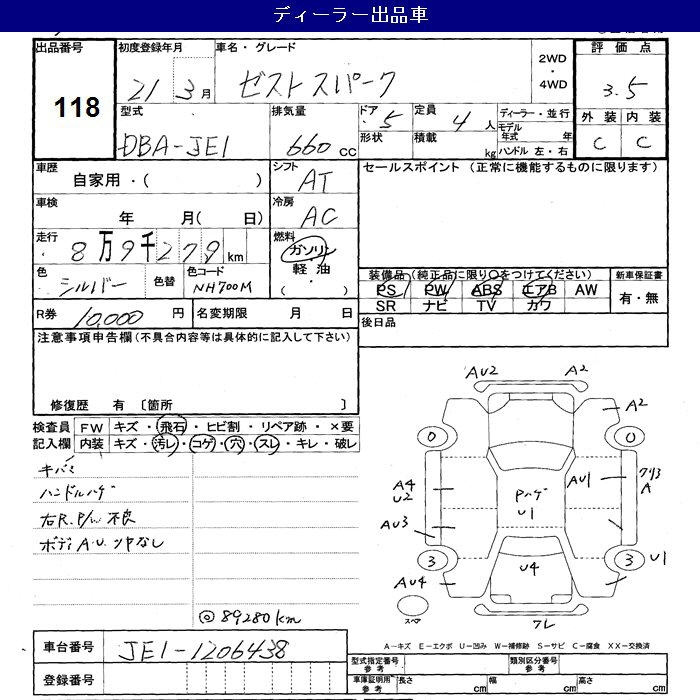 ディーラー出品車
出品番号 初度登録年月 車名・グレード 2WD・4WD 評価点
118 21 3月 ゼストスパーク 3.5
型式 排気量 ドア 5 定員 4人 ディーラー・並行 外装 内装
DBA-JE1 660cc 形状 積載 kg モデル年式 年 C C
ハンドル 左・右
車歴 シフト セールスポイント (正常に機能するものに限ります)
自家用・( ) AT
車検 冷房
年 月( 日) AC
走行 燃料
8万9千279km ガソリン
軽油
・( )
色 色替 色コード 装備品(純正品に限り○をつけてください) 新車保証書
シルバー NH700M PS PW ABS エアB AW 有・無
SR ナビ TV カワ
R券 10,000円 名変期限 月 日 後日品
注意事項申告欄(不具合内容等は具体的に記入して下さい)
修復歴 有 〔箇所 〕
検査員 FW キズ・飛石・ヒビ割・リペア跡・×要
記入欄 内装 キズ・汚レ・コゲ・穴・スレ・キレ・破レ
キバミ
ハンドルハゲ
右R.P/W不良
ボディA.U.ツヤなし
◎89280km
AU2 A2
A2
0 0
A4
U2
AU1
Pハゲ
U1
A
AU3
3 3 U1
AU4 U4
スペア
ワレ
A-キズ E-エクボ U-凹み W-補修跡 S-サビ C-腐食 XX-交換済
車台番号 JE1-1206438
登録番号
型式指定番号 参考 類別区分番号 参考
車庫証明用 参考 長さ cm 幅 cm 高さ cm